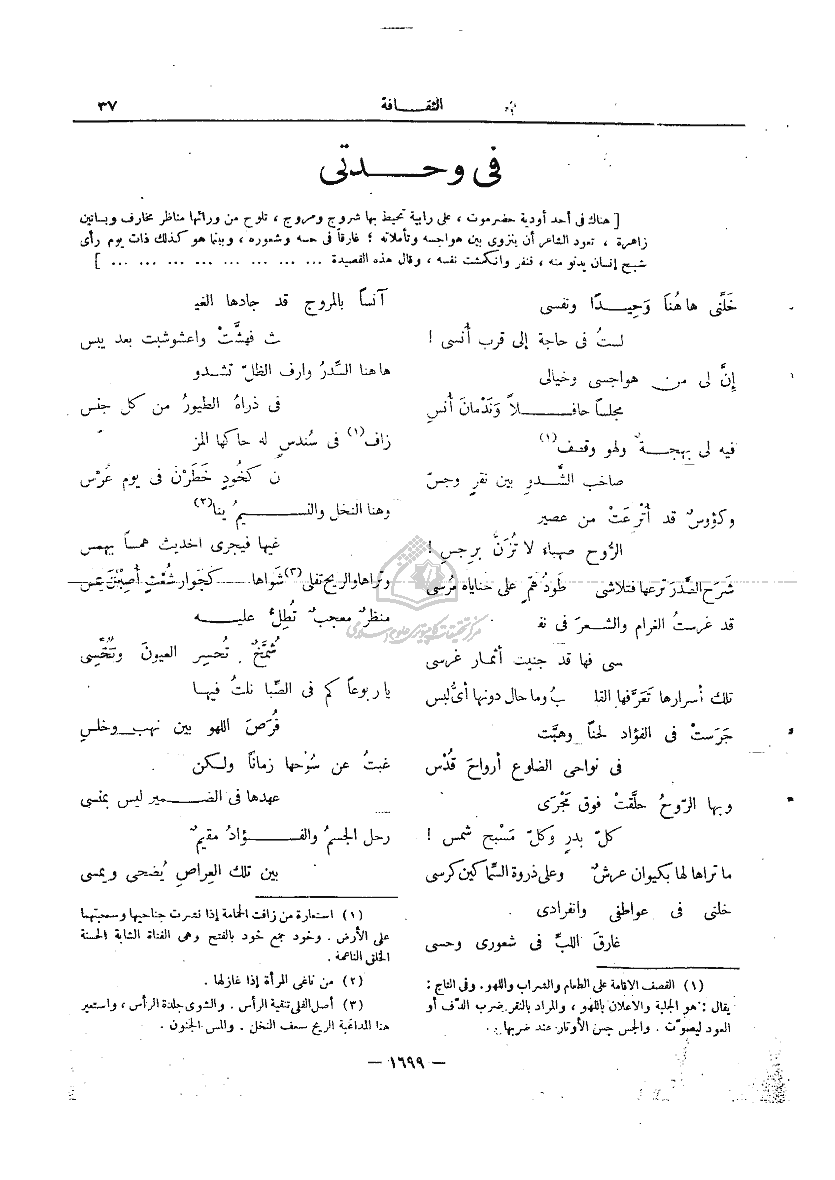 ٣٧
الثقافة
في وحدتي
[ هناك في أحد أودية حضرموت ، على رابية تحيط بها شروج ومروج ، تلوح من ورائها مناظر مخارف وبساتين
زاهرة ، تعود الشاعر أن ينزوى بين هواجسه وتأملاته ؛ غارقاً في حسه وشعوره ، وبينما هو كذلك ذات يوم رأى
شبح إنسان يدنو منه ، فنفر وانكمشت نفسه ، وقال هذه القصيدة ... ... ... ... ... ... ... ... ]
خَلَّنى هاهُنَا وَحِيداً ونفسى
لستُ فى حاجة إلى قرب أُنسى !
إنَّ لى من هواجسى وخيالى
مجلساً حافلاً وَنَدْمانَ أُنسِ
فيه لى بهجةٌ ولهو وقصف (١)
صاخب الشَّدوِ بين نقرٍ وجسّ
وكؤوسٌ قد أُتْرِعَتْ من عصير
الرُّوح صهباء لا تُزَنّ برجس !
شَرَحَ الصَّدرَ ترعها فتلاشى طَودُ همٍّ على حناياه مُرْسى
قد غرستُ الغرام والشعرَ فى نفـ
سى فها قد جنيت أثمار غرسى
تلك أسرارها تَعَرَّفها القلـ بُ وما حال دونها أىُّ لبس
جَرَستْ فى الفؤاد لحناً وهبَّت
فى نواحى الضلوع أرواحَ قُدْس
وبها الرّوحُ حلَّقتْ فوق مَجْرَى
كلّ بدرٍ وكلّ مَسْبح شمس !
ما تراها لها بكيوان عرشٌ وعلى ذروة السِّماكين كرسى
خلنى فى عواطفى وانفرادى
غارقَ اللبِّ فى شعورى وحسى
(١) القصف الاقامة على الطعام والشراب واللهو. وفى التاج :
يقال : هو الجلبة والاعلان باللهو ، والمراد بالنقر ضرب الدّف أو
العود ليصوّت . والجس جس الأوتار عند ضربها .
آنساً بالمروج قد جادها الغيـ
ث فهشَّتْ واعشوشبت بعد يبس
هاهنا السِّدرُ وارف الظلّ تشدو
فى ذراهُ الطيورُ من كل جنس
زاف (١) فى سُندس له حاكها المز
ن كخُودٍ خَطَرْنَ فى يوم عُرْس
وهنا النخل والنسيمُ ينا (٢)
غيها فيجرى الحديث همساً بهمس
وتراها والريح تفلى (٣) شَواها كجوارٍ شُعْثٍ أُصِبْنَ بمس
منظرٌ معجبٌ تُطِلّ عليه
شُمَّخٌ تُحسِر العيونَ وتُخَسِّى
ياربوعاً كم فى الصِّبا نلتُ فيها
فُرَصَ اللهو بين نهب وخلس
غبتُ عن سُوْحها زماناً ولكن
عهدها فى الضمير ليس بمنسى
رحل الجسمُ والفؤادُ مقيمٌ
بين تلك العِراصِ يُضحى ويمسى
(١) استعارة من زافت الحمامة إذا نشرت جناحيها وسحبتهما
على الأرض . وخود جمع خود بالفتح وهى الفتاة الشابة الحسنة
الخلق الناعمة .
(٢) من ناغى المرأة إذا غازلها .
(٣) أصل الفلى تنقية الرأس . والشوى جلدة الرأس ، واستعير
هنا لمداعبة الريح سعف النخل . والمس الجنون .
— ١٦٩٩ —